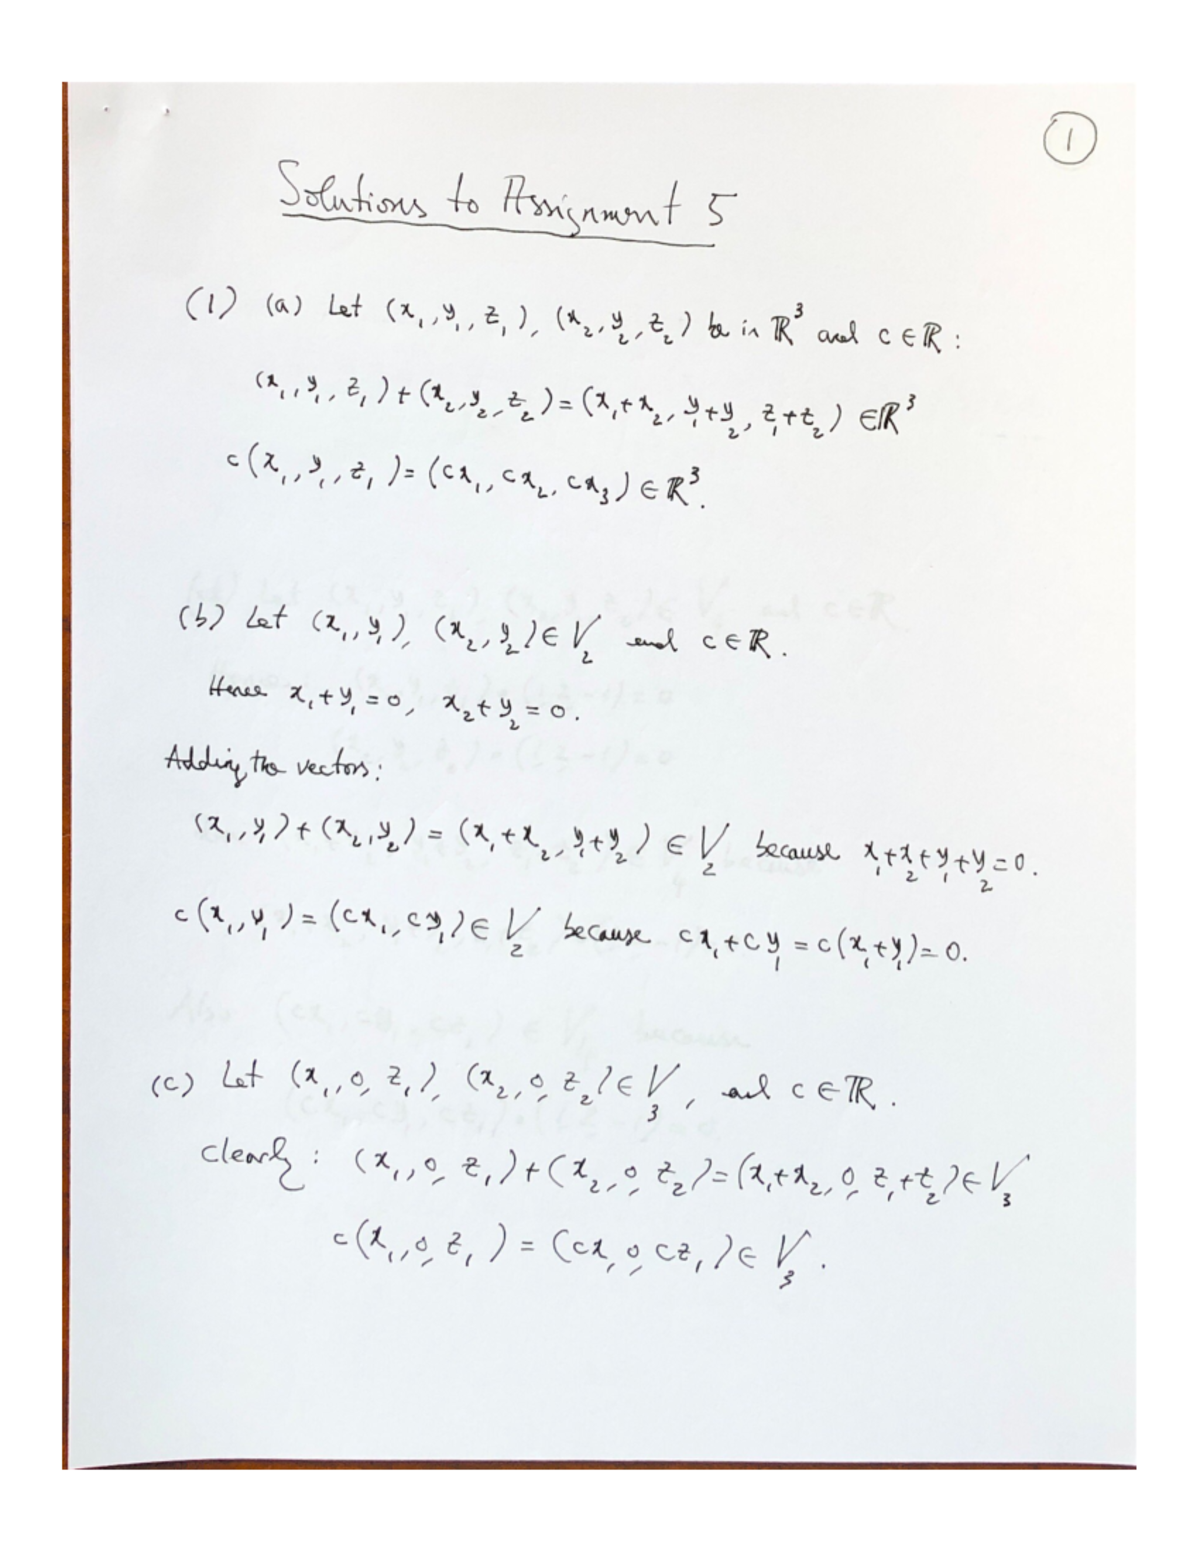 1
Solutions to Assignment 5
(1) (a) Let (x₁, y₁, z₁), (x₂, y₂, z₂) be in ℝ³ and c ∈ ℝ :
(x₁, y₁, z₁) + (x₂, y₂, z₂) = (x₁+x₂, y₁+y₂, z₁+z₂) ∈ ℝ³
c(x₁, y₁, z₁) = (cx₁, cx₂, cx₃) ∈ ℝ³.
(b) Let (x₁, y₁), (x₂, y₂) ∈ V₂ and c ∈ ℝ.
Hence x₁+y₁ = 0, x₂+y₂ = 0.
Adding the vectors:
(x₁, y₁) + (x₂, y₂) = (x₁+x₂, y₁+y₂) ∈ V₂ because x₁+x₂+y₁+y₂ = 0.
c(x₁, y₁) = (cx₁, cy₁) ∈ V₂ because cx₁+cy₁ = c(x₁+y₁) = 0.
(c) Let (x₁, 0, z₁), (x₂, 0, z₂) ∈ V₃, and c ∈ ℝ.
Clearly: (x₁, 0, z₁) + (x₂, 0, z₂) = (x₁+x₂, 0, z₁+z₂) ∈ V₃
c(x₁, 0, z₁) = (cx, 0, cz₁) ∈ V₃.